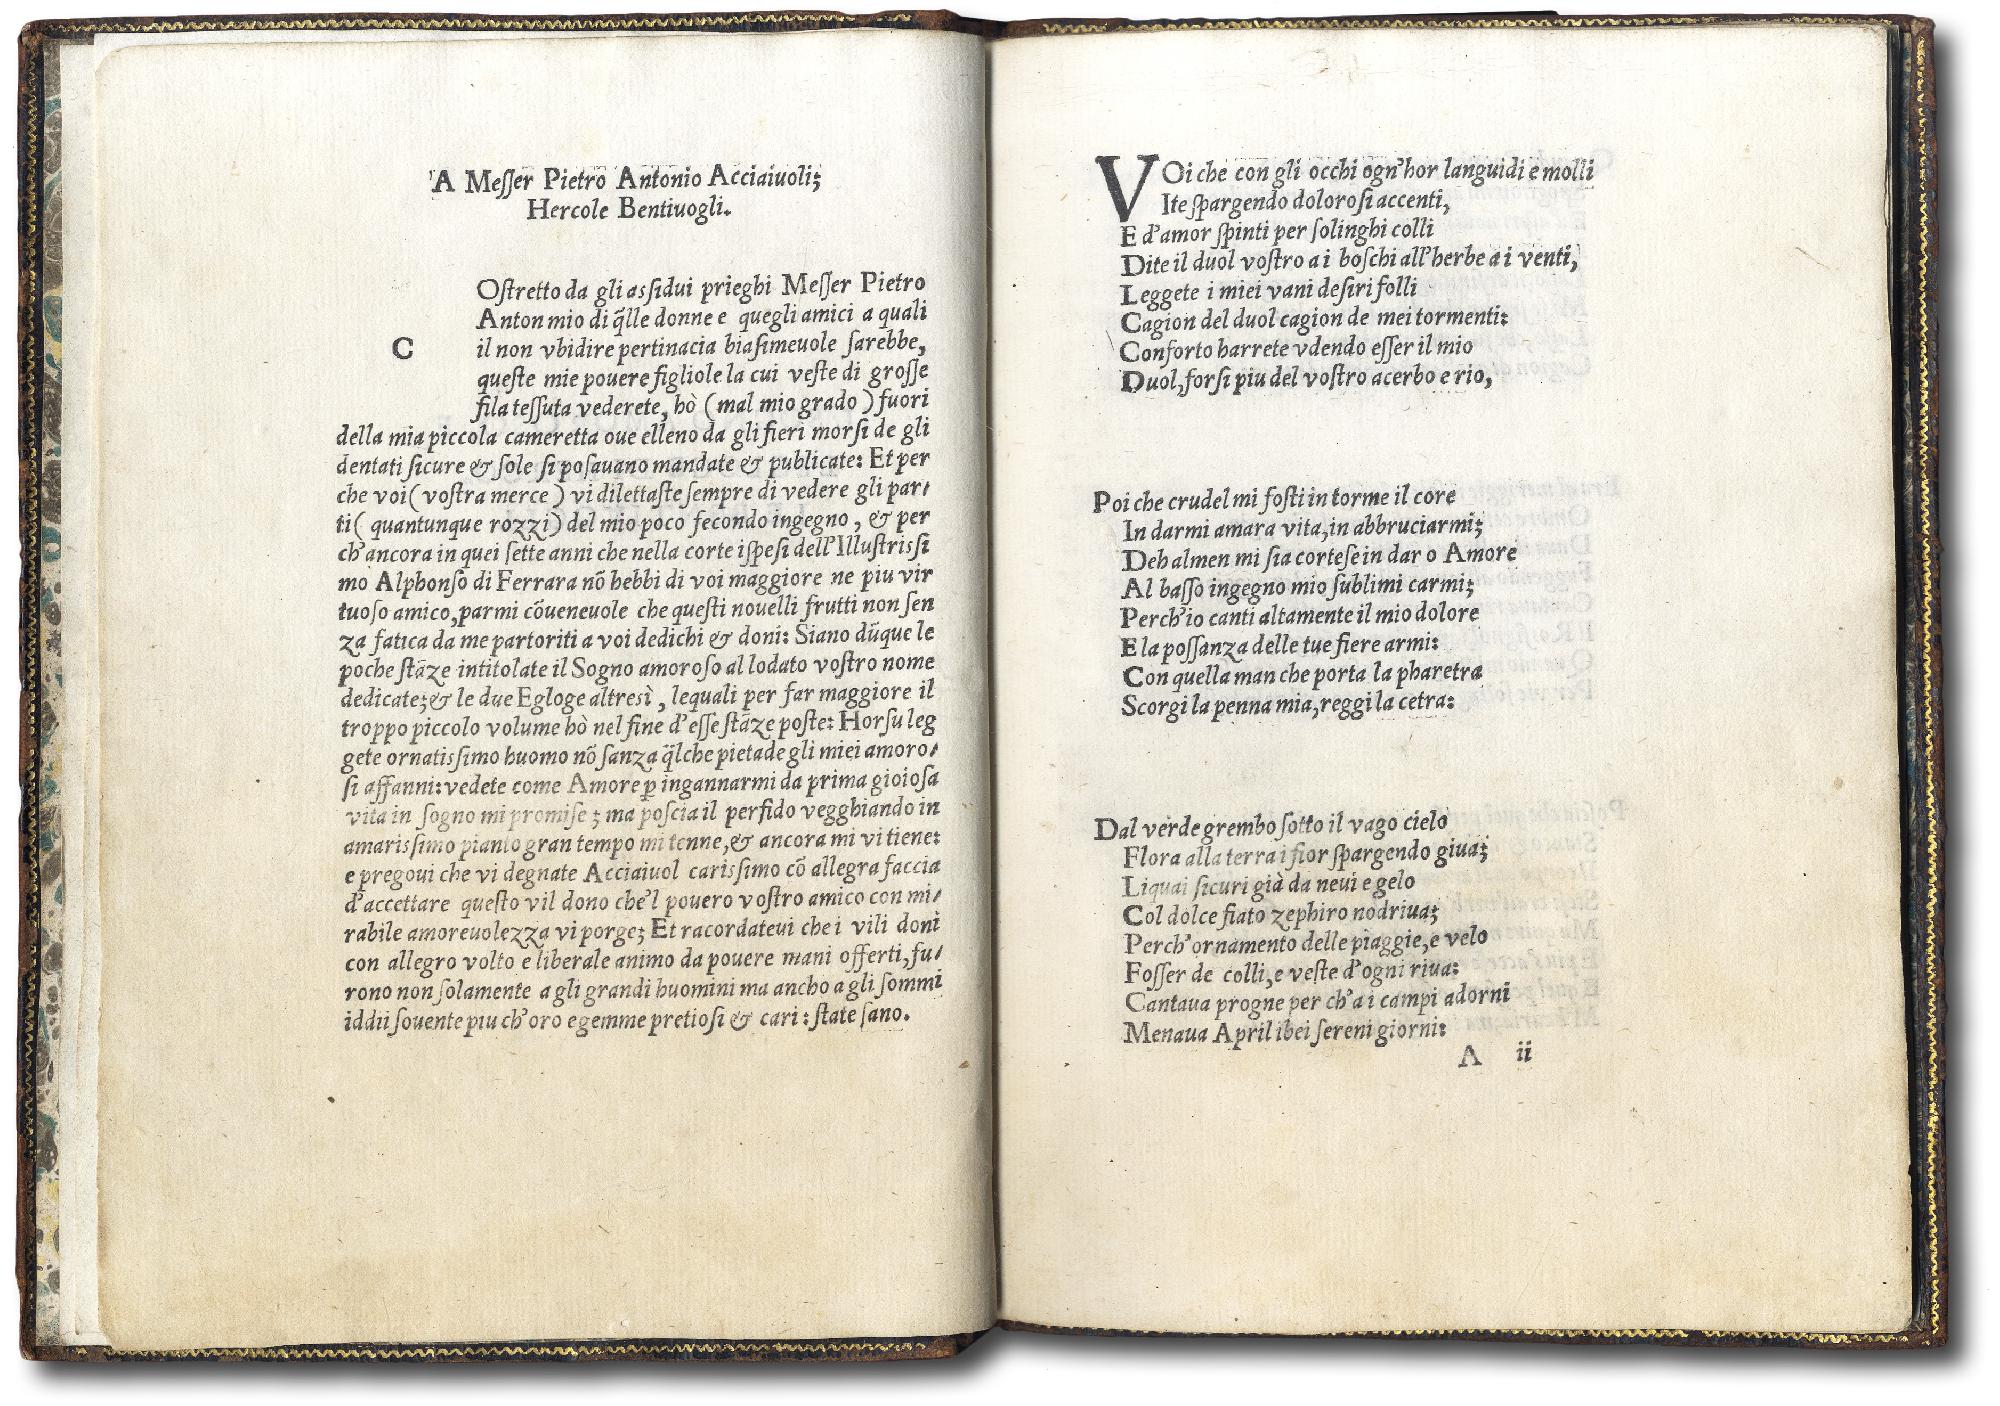 A Meſſer Pietro Antonio Acciaiuoli;
Hercole Bentiuogli.
C
Oſtretto da gli aſſidui prieghi Meſſer Pietro
Anton mio di q̃lle donne e quegli amici a quali
il non vbidire pertinacia biaſimeuole ſarebbe,
queſte mie pouere figliole la cui veſte di groſſe
fila teſſuta vederete, hò (mal mio grado) fuori
della mia piccola cameretta oue elleno da gli fieri morſi de gli
dentati ſicure & ſole ſi poſauano mandate & publicate: Et per
che voi (voſtra merce) vi dilettaſte ſempre di vedere gli par/
ti (quantunque rozzi) del mio poco fecondo ingegno, & per
ch'ancora in quei ſette anni che nella corte iſpeſi dell'Illuſtriſſi
mo Alphonſo di Ferrara nõ hebbi di voi maggiore ne piu vir
tuoſo amico, parmi cõueneuole che queſti nouelli frutti non ſen
za fatica da me partoriti a voi dedichi & doni: Siano dũque le
poche ſtãze intitolate il Sogno amoroſo al lodato voſtro nome
dedicate; & le due Egloge altresì, lequali per far maggiore il
troppo piccolo volume hò nel fine d'eſſe ſtãze poſte: Horſu leg
gete ornatiſſimo huomo nõ ſanza q̃lche pietade gli miei amoro/
ſi affanni: vedete come Amore ꝑ ingannarmi da prima gioioſa
vita in ſogno mi promiſe; ma poſcia il perfido vegghiando in
amariſſimo pianto gran tempo mi tenne, & ancora mi vi tiene:
e pregoui che vi degnate Acciaiuol cariſſimo cõ allegra faccia
d'accettare queſto vil dono che'l pouero voſtro amico con mi/
rabile amoreuolezza vi porge; Et racordateui che i vili doni
con allegro volto e liberale animo da pouere mani offerti, fu/
rono non ſolamente a gli grandi huomini ma ancho a gli ſommi
iddii ſouente piu ch'oro e gemme pretioſi & cari: ſtate ſano.
VOi che con gli occhi ogn'hor languidi e molli
Ite ſpargendo doloroſi accenti,
E d'amor ſpinti per ſolinghi colli
Dite il duol voſtro a i boſchi all'herbe a i venti,
Leggete i miei vani deſiri folli
Cagion del duol cagion de mei tormenti:
Conforto harrete vdendo eſſer il mio
Duol, forſi piu del voſtro acerbo e rio,
Poi che crudel mi foſti in torme il core
In darmi amara vita, in abbruciarmi;
Deh almen mi ſia corteſe in dar o Amore
Al baſſo ingegno mio ſublimi carmi;
Perch'io canti altamente il mio dolore
E la poſſanza delle tue fiere armi:
Con quella man che porta la pharetra
Scorgi la penna mia, reggi la cetra:
Dal verde grembo ſotto il vago cielo
Flora alla terra i fior ſpargendo giua;
Liquai ſicuri già da neui e gelo
Col dolce fiato zephiro nodriua;
Perch'ornamento delle piaggie, e velo
Foſſer de colli, e veſte d'ogni riua:
Cantaua progne per ch'a i campi adorni
Menaua April ibei ſereni giorni:
A ii